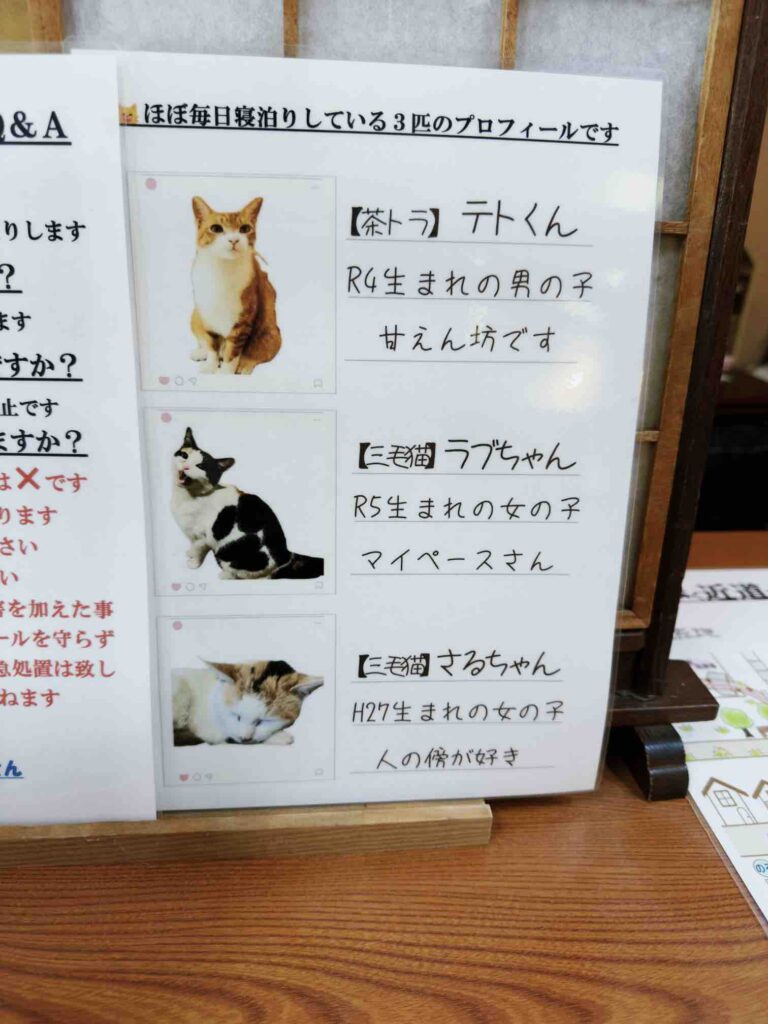 Q&A
りします
?
ます
ですか?
止です
ますか?
は❌です
ります
さい
い
害を加えた事
ールを守らず
急処置は致し
ねます
ほぼ毎日寝泊りしている3匹のプロフィールです
【茶トラ】 テトくん
R4生まれの男の子
甘えん坊です
【三毛猫】 ラブちゃん
R5生まれの女の子
マイペースさん
【三毛猫】 さるちゃん
H27生まれの女の子
人の傍が好き
近道